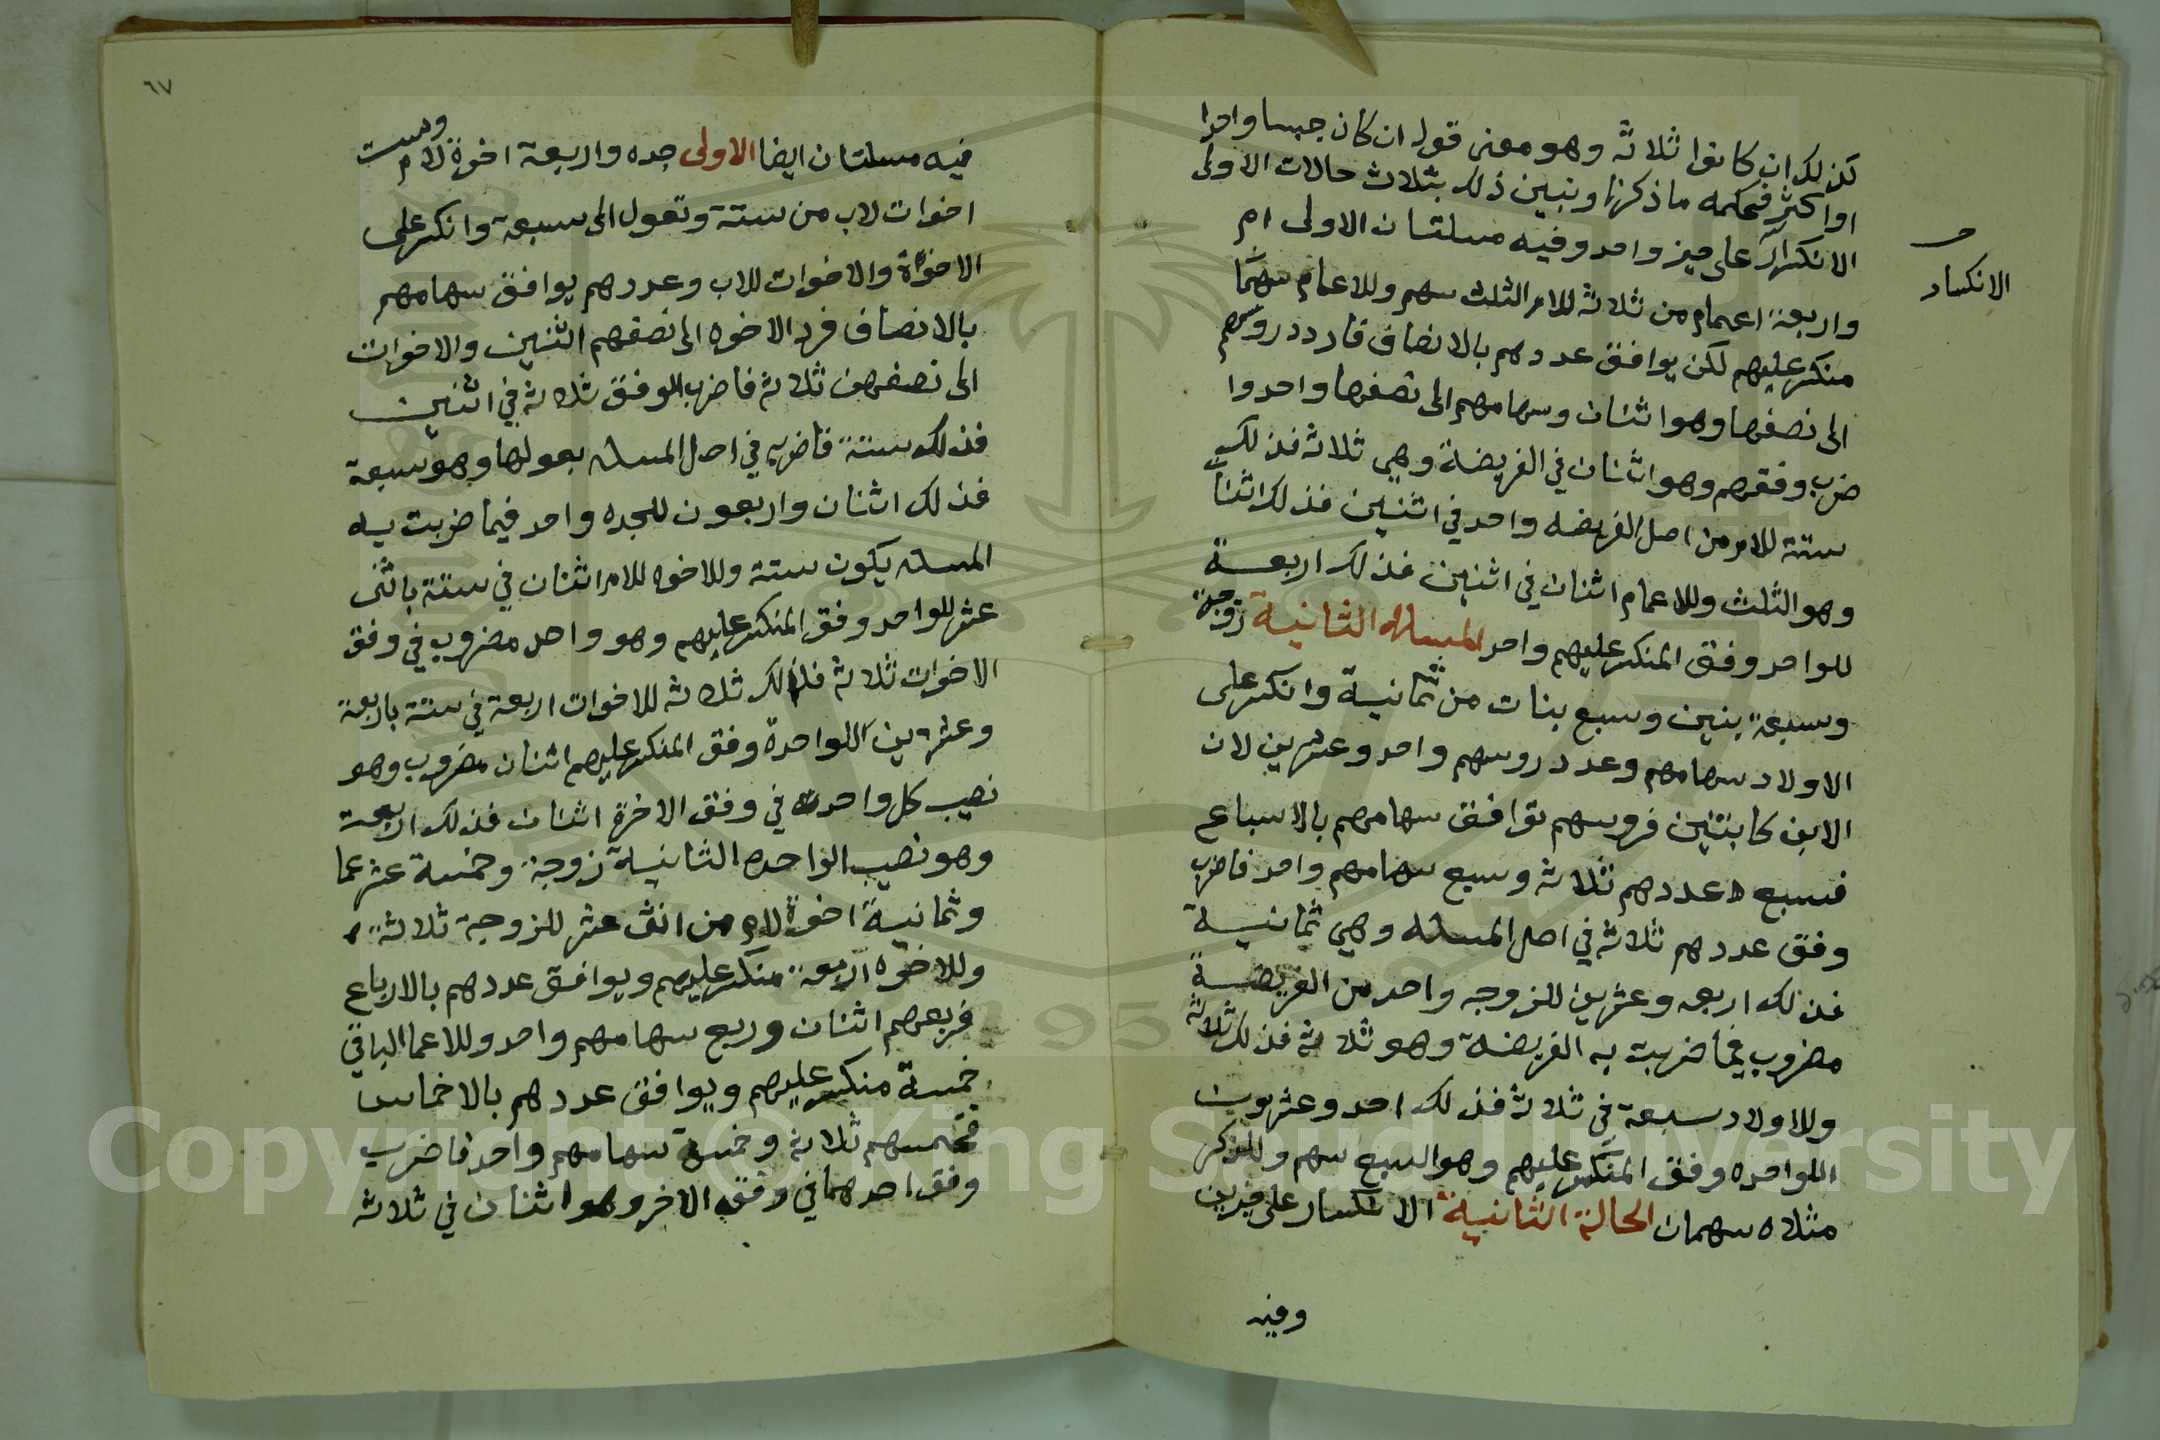 كذلك ان كانوا ثلاثة وهو معنى قوله ان كان جنسا واحدا
او اكثر فحكمه ما ذكرنا ونبين ذلك بثلاث حالات الاولى
الانكسار على حيز واحد وفيه مسلتان الاولى ام
الانكسار
واربعة اعمام من ثلاثة للام الثلث سهم وللاعمام سهما
منكسر عليهم لكن يوافق عددهم بالانصاف فاردد روسهم
الى نصفها وهو اثنان وسهامهم الى نصفها واحد وا
ضرب وفقهم وهو اثنان في الفريضة وهي ثلاثة فذلك
ستة للام من اصل الفريضه واحد في اثنين فذلك اثنان
وهو الثلث وللاعمام اثنان في اثنين فذلك اربعة
للواحد وفق المنكسر عليهم واحد المسله الثانية زوجة
وسبعة بنين وسبع بنات من ثمانية وانكسر على
الاولاد سهامهم وعدد روسهم واحد وعشرين لان
الابن كابنتين فروسهم توافق سهامهم بالاسباع
فسبع عددهم ثلاثه وسبع سهامهم واحد فاضرب
وفق عددهم ثلاثة في اصل المسله وهي ثمانية
فذلك اربعه وعشرين للزوجه واحد من الفريضة
مضروب فيما ضربت به الفريضة وهو ثلاثة فذلك ثلاثة
وللاولاد سبعة في ثلاثة فذلك احد وعشرون
للواحده وفق المنكسر عليهم وهو السبع سهم وللذكر
مثلاه سهمان الحالة الثانية الانكسار على حيزين
وفيه
٦٧
فيه مسلتان ايضا الاولى جده واربعة اخوة لام وست
اخوات لاب من ستة وتعول الى سبعة وانكسر على
الاخوة والاخوات للاب وعددهم يوافق سهامهم
بالانصاف فرد الاخوه الى نصفهم اثنين والاخوات
الى نصفهن ثلاثة فاضرب الوفق ثلاثة في اثنين
فذلك ستة فاضربه في اصل المسله بعولها وهو سبعة
فذلك اثنان واربعون للجده واحد فيما ضربت به
المسله يكون ستة وللاخوه للام اثنان في ستة باثنى
عشر للواحد وفق المنكسر عليهم وهو واحد مضروب في وفق
الاخوات ثلاثة فذلك ثلاثه للاخوات اربعة في ستة باربعة
وعشرين للواحدة وفق المنكسر عليهم اثنان مضروب وهو
نصيب كل واحدة في وفق الاخرة اثنان فذلك اربعة
وهو نصيب الواحده الثانية زوجة وخمسة عشر عما
وثمانية اخوة لام من اثنى عشر للزوجة ثلاثة
وللاخوه اربعة منكسر عليهم ويوافق عددهم بالارباع
فربعهم اثنان وربع سهامهم واحد وللاعما الباقي
خمسة منكسر عليهم ويوافق عددهم بالاخماس
فخمسهم ثلاثة وخمس سهامهم واحد فاضرب
وفق احدهما في وفق الاخر وهو اثنان في ثلاثة
Copyright © King Saud University